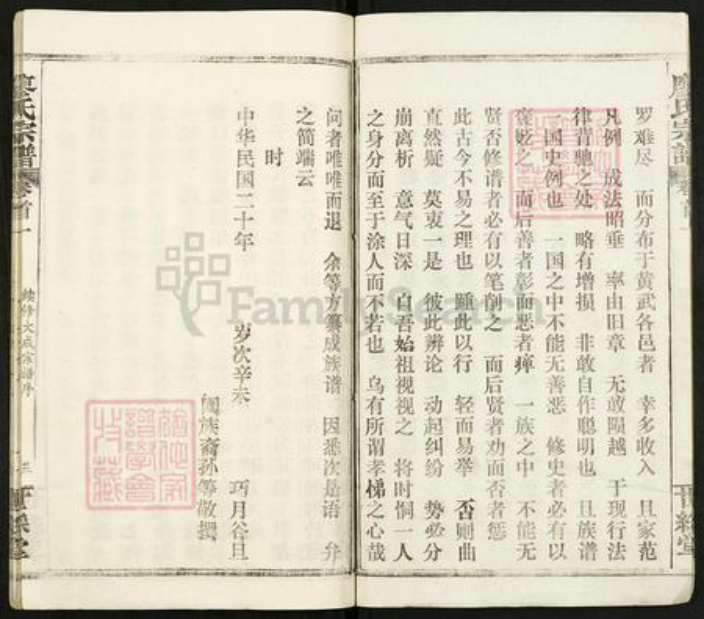 罗难尽　而分布于黄武各邑者　幸多收入　且家范
凡例　成法昭垂　率由旧章　无敢陨越　于现行法
律背驰之处　略有增损　非敢自作聪明也　且族谱
一国史例也　一国之中不能无善恶　修史者必有以
褒贬之　而后善者彰而恶者瘅　一族之中　不能无
贤否修谱者必有以笔削之　而后贤者劝而否者惩
此古今不易之理也　踵此以行　轻而易举　否则曲
直然疑　莫衷一是　彼此辨论　动起纠纷　势必分
崩离析　意气日深　自吾始祖视视之　将时恫一人
之身分而至于涂人而不若也　乌有所谓孝悌之心哉
问者唯唯而退　余等方纂成族谱　因悉次是语　弁
之简端云
时
中华民国二十年　岁次辛未　巧月谷旦
阖族裔孙等敬撰
廖氏宗谱　卷首一　续修大成宗谱序　三　世綵堂
廖氏宗谱　卷首一　世綵堂
FamilySearch